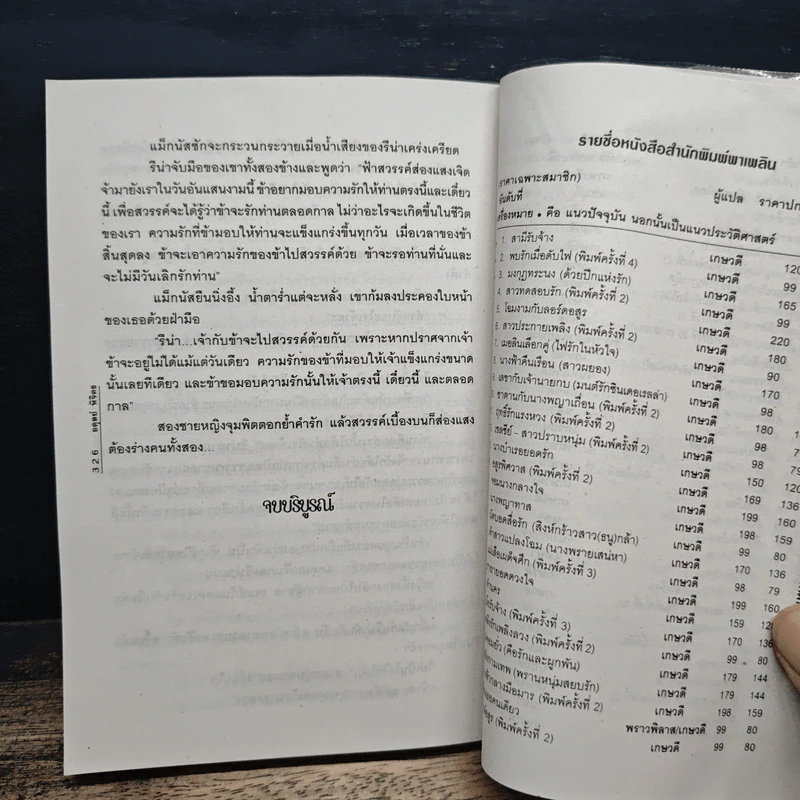 แม็กนัสชักจะกระวนกระวายเมื่อน้ำเสียงของรีน่าเคร่งเครียด
รีน่าจับมือของเขาทั้งสองข้างและพูดว่า “ฟ้าสวรรค์ส่องแสงเจิด
จ้ามายังเราในวันอันแสนงามนี้ ข้าอยากมอบความรักให้ท่านตรงนี้และเดี๋ยว
นี้ เพื่อสวรรค์จะได้รู้ว่าข้าจะรักท่านตลอดกาล ไม่ว่าอะไรจะเกิดขึ้นในชีวิต
ของเรา ความรักที่ข้ามอบให้ท่านจะแข็งแกร่งขึ้นทุกวัน เมื่อเวลาของข้า
สิ้นสุดลง ข้าจะเอาความรักของข้าไปสวรรค์ด้วย ข้าจะรอท่านที่นั่นและ
จะไม่มีวันเลิกรักท่าน”
แม็กนัสยืนนิ่งอึ้ง น้ำตาร่ำแต่จะหลั่ง เขาก้มลงประคองใบหน้า
ของเธอด้วยฝ่ามือ
“รีน่า...เจ้ากับข้าจะไปสวรรค์ด้วยกัน เพราะหากปราศจากเจ้า
ข้าจะอยู่ไม่ได้แม้แต่วันเดียว ความรักของข้าที่มอบให้เจ้าแข็งแกร่งขนาด
นั้นเลยทีเดียว และข้าขอมอบความรักนั้นให้เจ้าตรงนี้ เดี๋ยวนี้ และตลอด
กาล”
สองชายหญิงจุมพิตตอกย้ำคำรัก แล้วสวรรค์เบื้องบนก็ส่องแสง
ต้องร่างคนทั้งสอง...
จบบริบูรณ์
326 อตุตย์ พิจิตร
รายชื่อหนังสือสำนักพิมพ์พาเพลิน
(ราคาเฉพาะสมาชิก)
อันดับที่ ผู้แปล ราคาปก
เครื่องหมาย • คือ แนวปัจจุบัน นอกนั้นเป็นแนวประวัติศาสตร์
1. สามีรับจ้าง เกษวดี 120
2. พบรักเมื่อดับไฟ (พิมพ์ครั้งที่ 4) เกษวดี 99
3. มงกุฎทระนง (ด้วยปีกแห่งรัก) เกษวดี 165
4. สาวทดสอบรัก (พิมพ์ครั้งที่ 2) เกษวดี 99
5. โฉมงามกับลอร์ดอสูร เกษวดี 220
6. สาวประกายเพลิง (พิมพ์ครั้งที่ 2) เกษวดี 180
7. เมอลินเลือกคู่ (ไฟรักในหัวใจ) เกษวดี 90
8. นางฟ้าคืนเรือน (สาวผยอง) เกษวดี 170
เลขากับเจ้านายกบ (มนต์รักซินเดอเรลล่า) เกษวดี 98
ซาตานกับนางพญาเถื่อน (พิมพ์ครั้งที่ 2) เกษวดี 180
ฤทธิ์รักแรงหวง (พิมพ์ครั้งที่ 2) เกษวดี 98
เชลซีย์ – สาวปราบหนุ่ม (พิมพ์ครั้งที่ 2) เกษวดี 98
นางบำเรอยอดรัก เกษวดี 150 120
(พิมพ์ครั้งที่ 2) เกษวดี 169 136
เกษวดี 199 160
นางพญาทาส เกษวดี 198 159
(สิงห์กร้าวสาว(ธนู)กล้า) เกษวดี 99 80
สาวแปลงโฉม (นางพรายเสน่หา) เกษวดี 170 136
(พิมพ์ครั้งที่ 3) เกษวดี 98 79
ยอดดวงใจ เกษวดี 199 160
เกษวดี 159
(พิมพ์ครั้งที่ 3) เกษวดี 170 136
(พิมพ์ครั้งที่ 2) เกษวดี 99 80
(คือรักและผูกพัน) เกษวดี 179 144
(พรานหนุ่มสยบรัก) เกษวดี 179 144
(พิมพ์ครั้งที่ 2) เกษวดี 198 159
พราวพิลาส/เกษวดี 99 80
(พิมพ์ครั้งที่ 2) เกษวดี 99 80